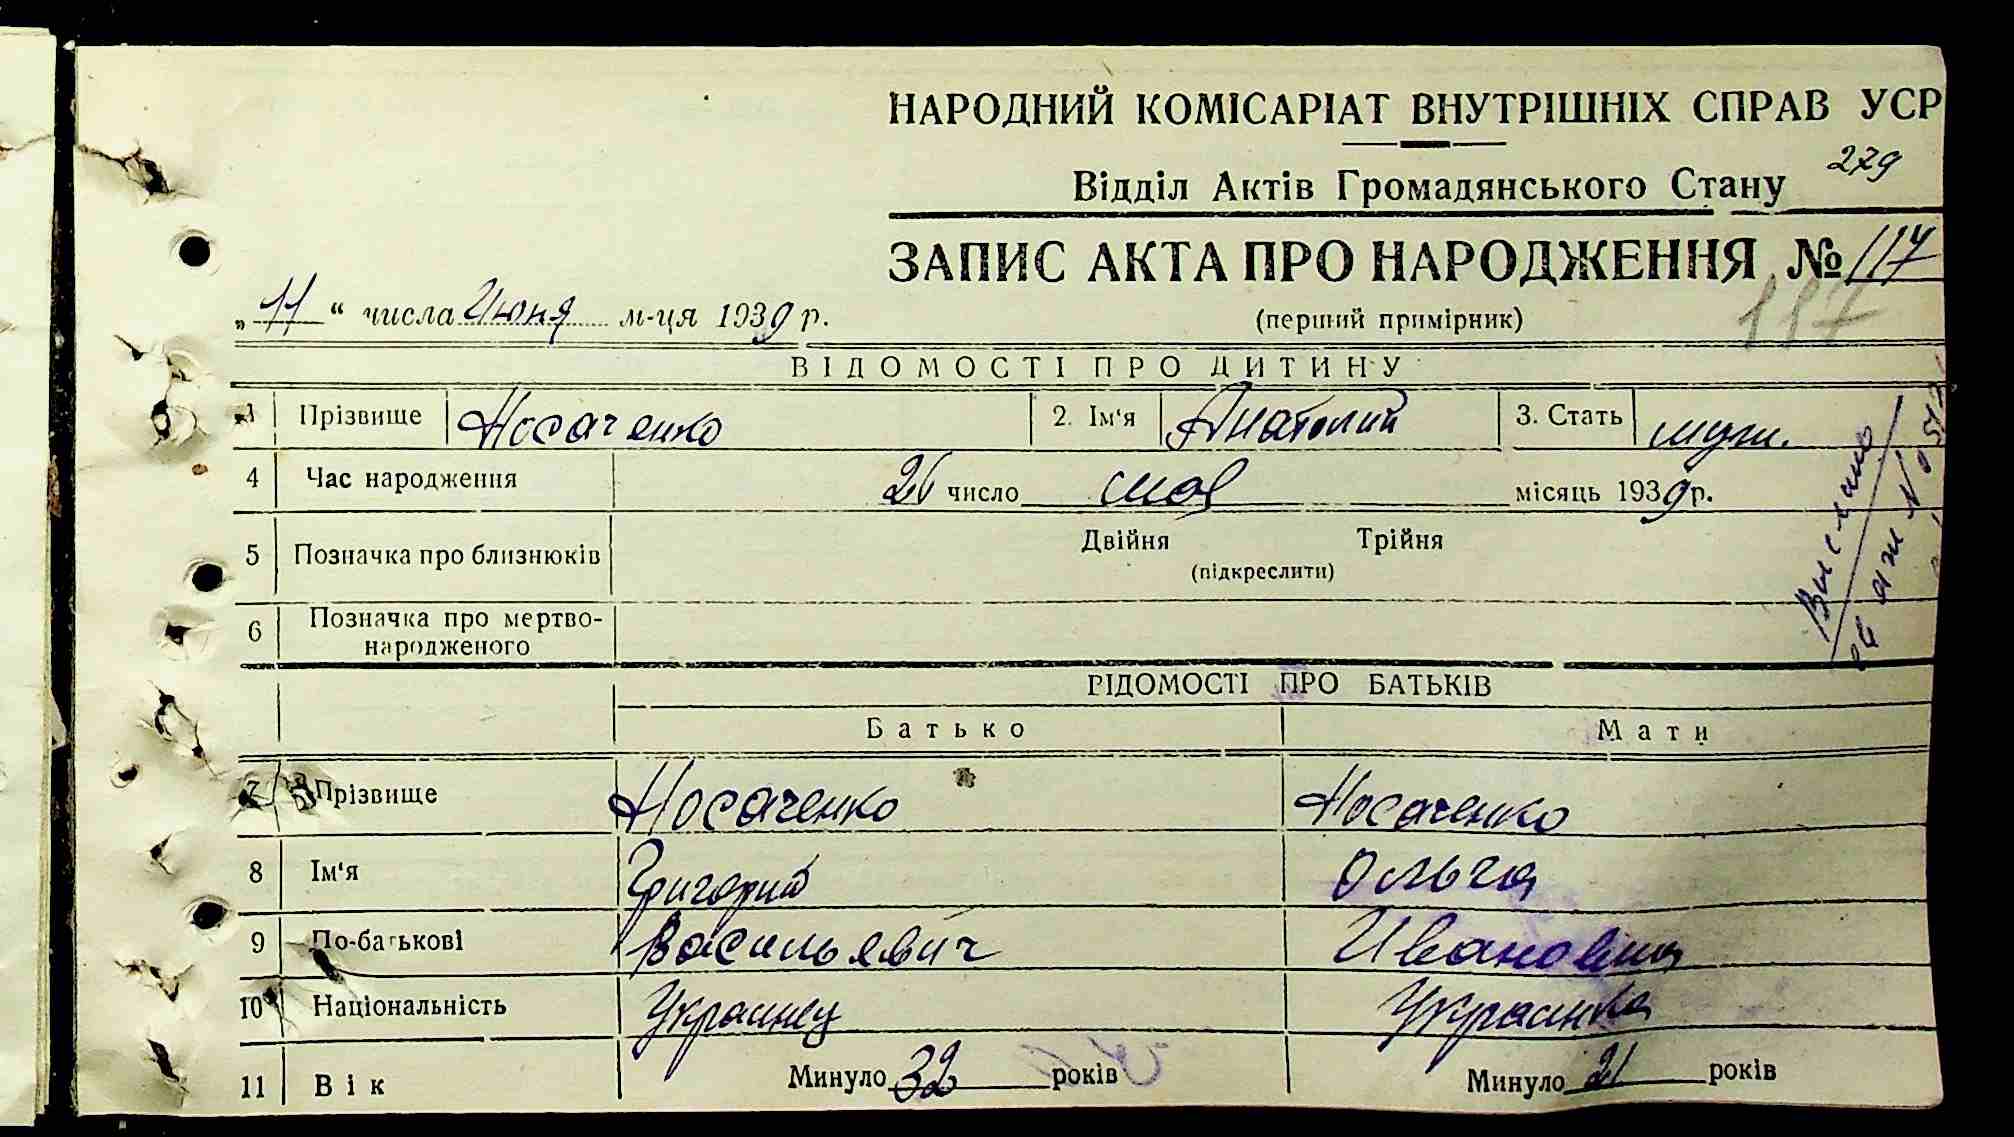 НАРОДНИЙ КОМІСАРІАТ ВНУТРІШНІХ СПРАВ УСР
279
Відділ Актів Громадянського Стану
ЗАПИС АКТА ПРО НАРОДЖЕННЯ № 117
„11“ числа Июня м-ця 1939 р.
(перший примірник)
117
ВІДОМОСТІ ПРО ДИТИНУ
1 Прізвище Носаченко 2. Ім'я Анатолий 3. Стать муж.
4 Час народження 26 число мая місяць 1939 р.
5 Позначка про близнюків Двійня Трійня
(підкреслити)
6 Позначка про мертво-
народженого
Выслано
ВІДОМОСТІ ПРО БАТЬКІВ
Батько Мати
7 Прізвище Носаченко Носаченко
8 Ім'я Григорий Ольга
9 По-батькові Васильевич Ивановна
10 Національність Украинец Украинка
11 Вік Минуло 32 років Минуло 21 років